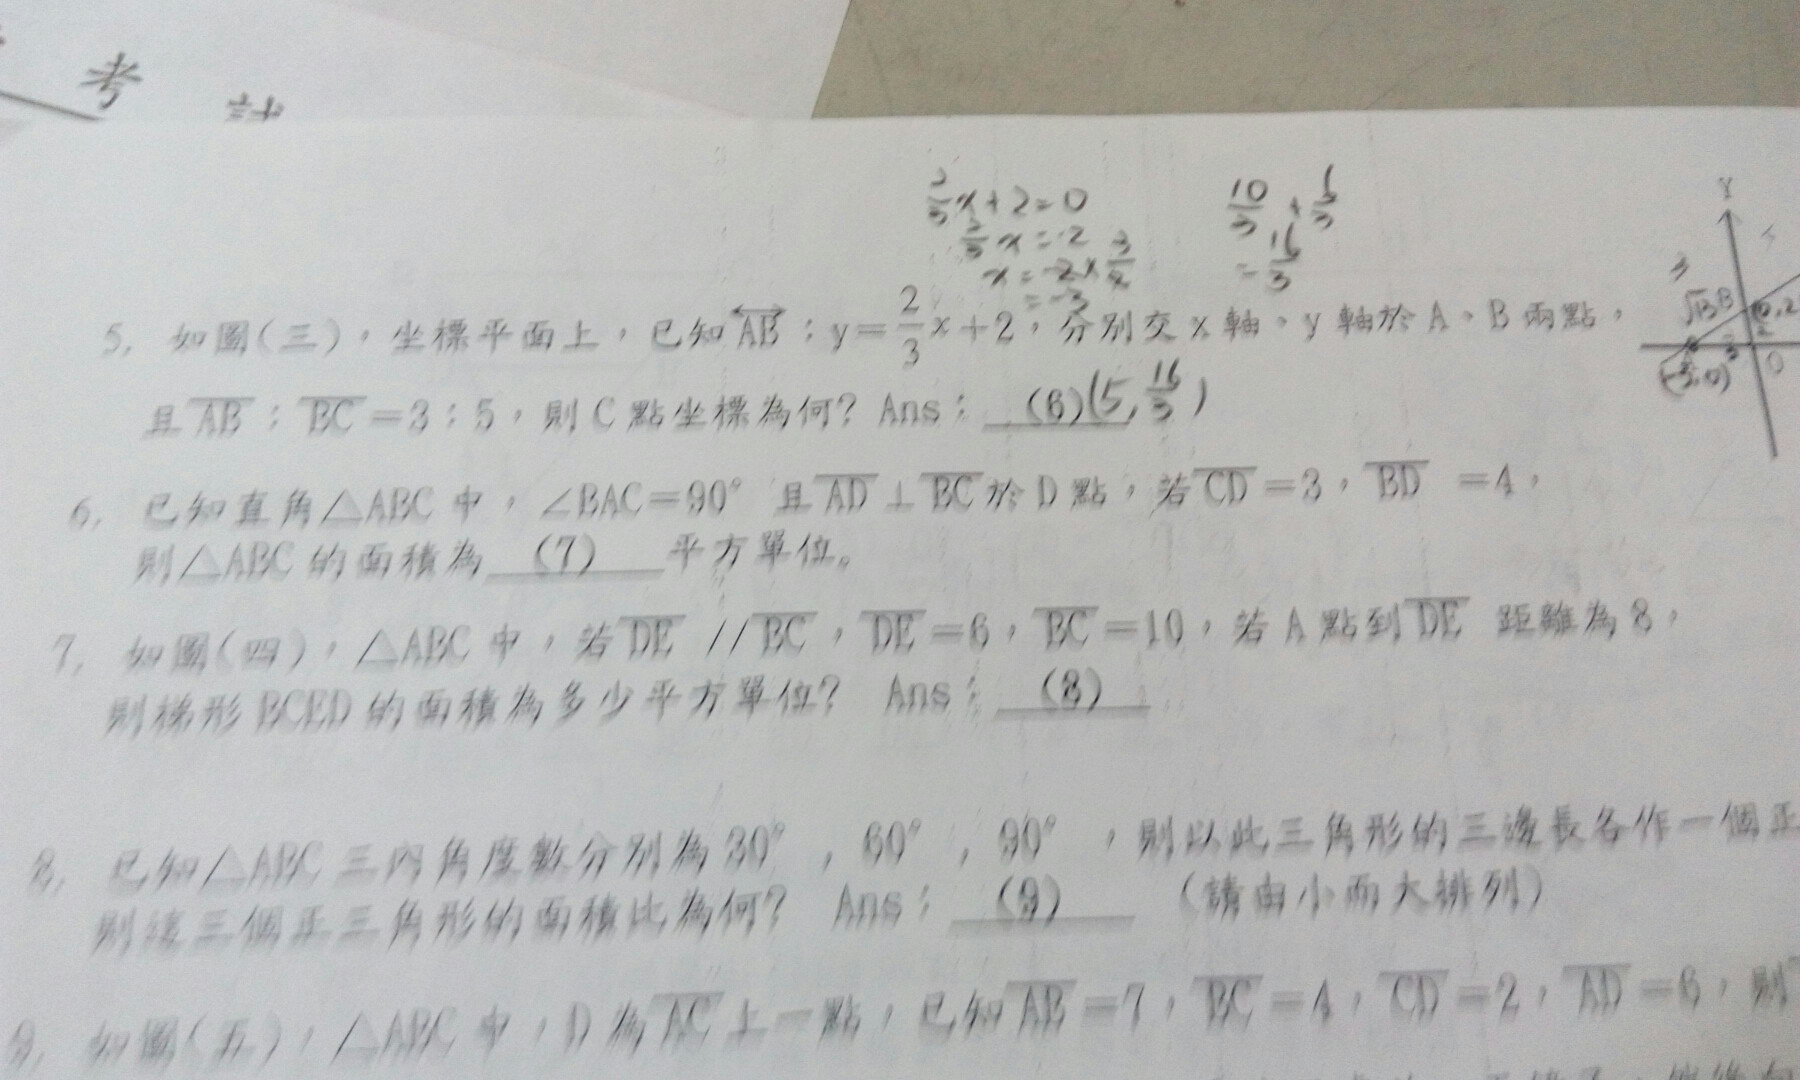 考 試
2/3x+2=0
2/3x=-2
x=-2×3/2
=-3
10/3+6/3
=16/3
5. 如圖(三)，坐標平面上，已知AB：y=2/3x+2，分別交 x 軸、y 軸於 A、B 兩點，
且AB：BC=3：5，則 C 點坐標為何? Ans：(6)(5,16/3)
Y
3
√13 B
(-3,0)
O
6. 已知直角△ABC 中，∠BAC=90° 且AD⊥BC於 D 點，若CD=3，BD=4，
則△ABC 的面積為 (7) 平方單位。
7. 如圖(四)，△ABC 中，若DE//BC，DE=6，BC=10，若 A 點到DE 距離為 8，
則梯形 BCED 的面積為多少平方單位? Ans：(8)
8. 已知△ABC 三內角度數分別為 30°，60°，90°，則以此三角形的三邊長各作一個正
則這三個正三角形的面積比為何? Ans：(9) (請由小而大排列)
9. 如圖(五)，△ABC 中，D 為AC上一點，已知AB=7，BC=4，CD=2，AD=6，則